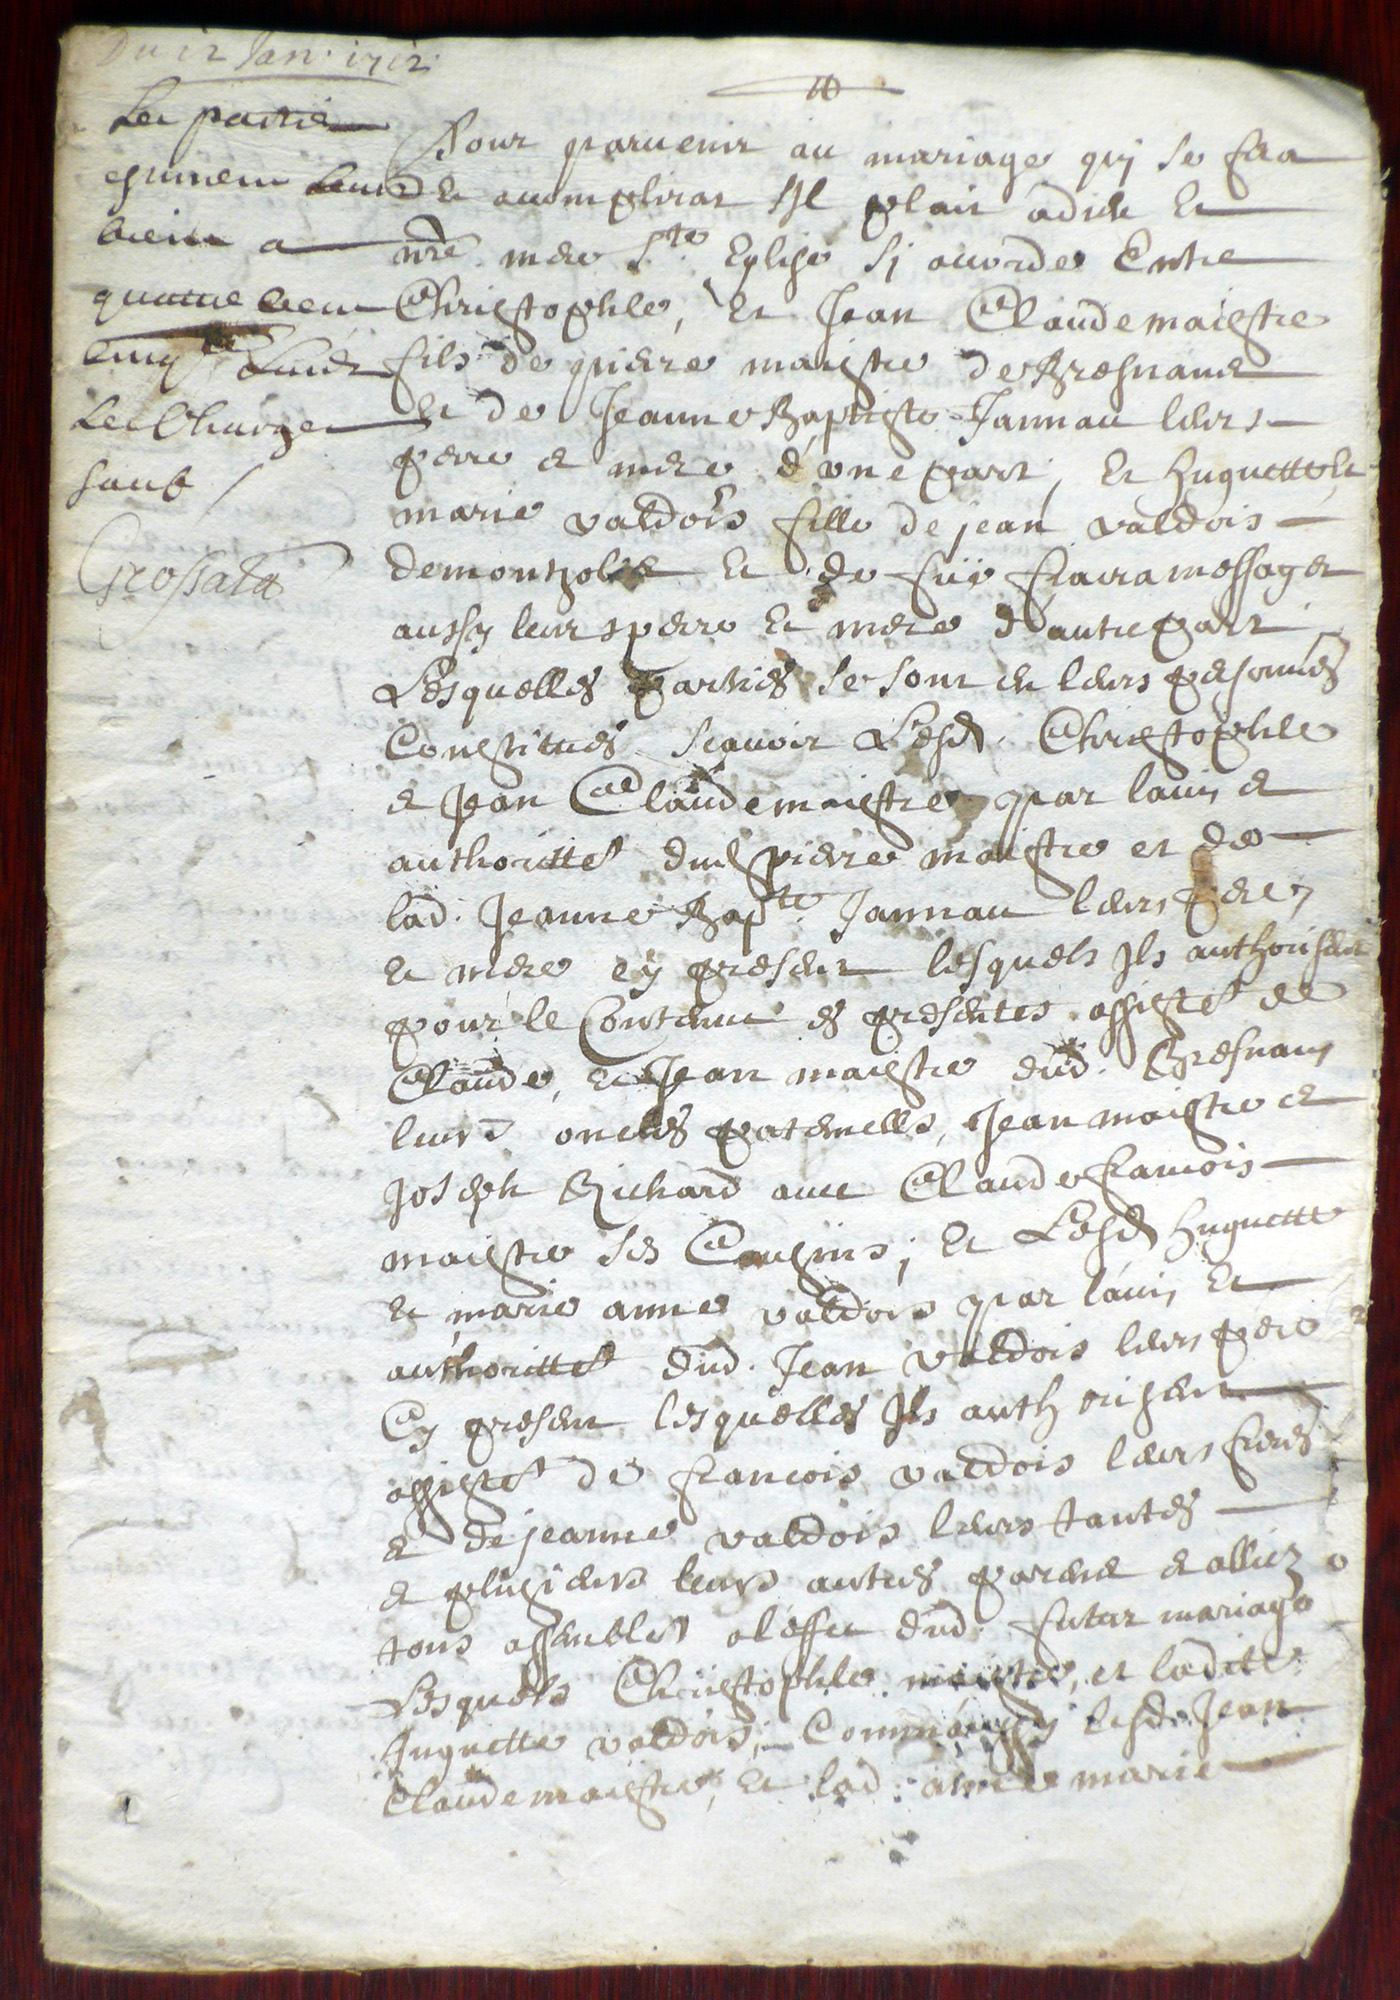 Du 12 Jan. 1712.
Les parties
estiment leurs
biens a
quattre cent
cinq
Les Charges
sauf /
Grossata
Pour parvenir au mariage qui se fera
et accomplirat s'Il plait a dieu et
nre mere Ste Eglise si accorde Entre
Christophle, Et Jean Claude maistre
fils de pierre maistre de Bresnans
et de Jeanne Baptiste Jannau leurs
perre et mere d'une part, Et huguette et
marie valdois fille de jean valdois
de et de fuë messager
aussy leurs perre et mere d'autre part
Lesquelles parties se sont en leurs personnes
Constitues scavoir Lesd. Christophle
et Jean Claude maistre par lavis et
authoritté dud pierre maistre et de
lad. Jeanne Bapte Jannau leurs pere
et mere cy present lesquels Ils authorisent
pour le Contenu es presentes assisté de
Claude, et Jean maistre dud. Bresnans
leurs oncles paternells, Jean maistre et
Joseph Richard avec Claude francois
maistre ses Cousins; Et Lesd huguette
et marie anne valdois par lavis et
authoritté dud. Jean valdois leurs pere
Cy present lesquelles Ils authorisent
assisté de francois valdois leurs freres
et de jeanne valdois leurs tantes
et plusieurs leurs autres parens et alliez
tous assemblés a l'effet dud. futur mariage
Lesquels Christophle maistre, et ladite
huguette valdois, Comm'aussy lesd. Jean
Claude maistre, Et lad. anne marie